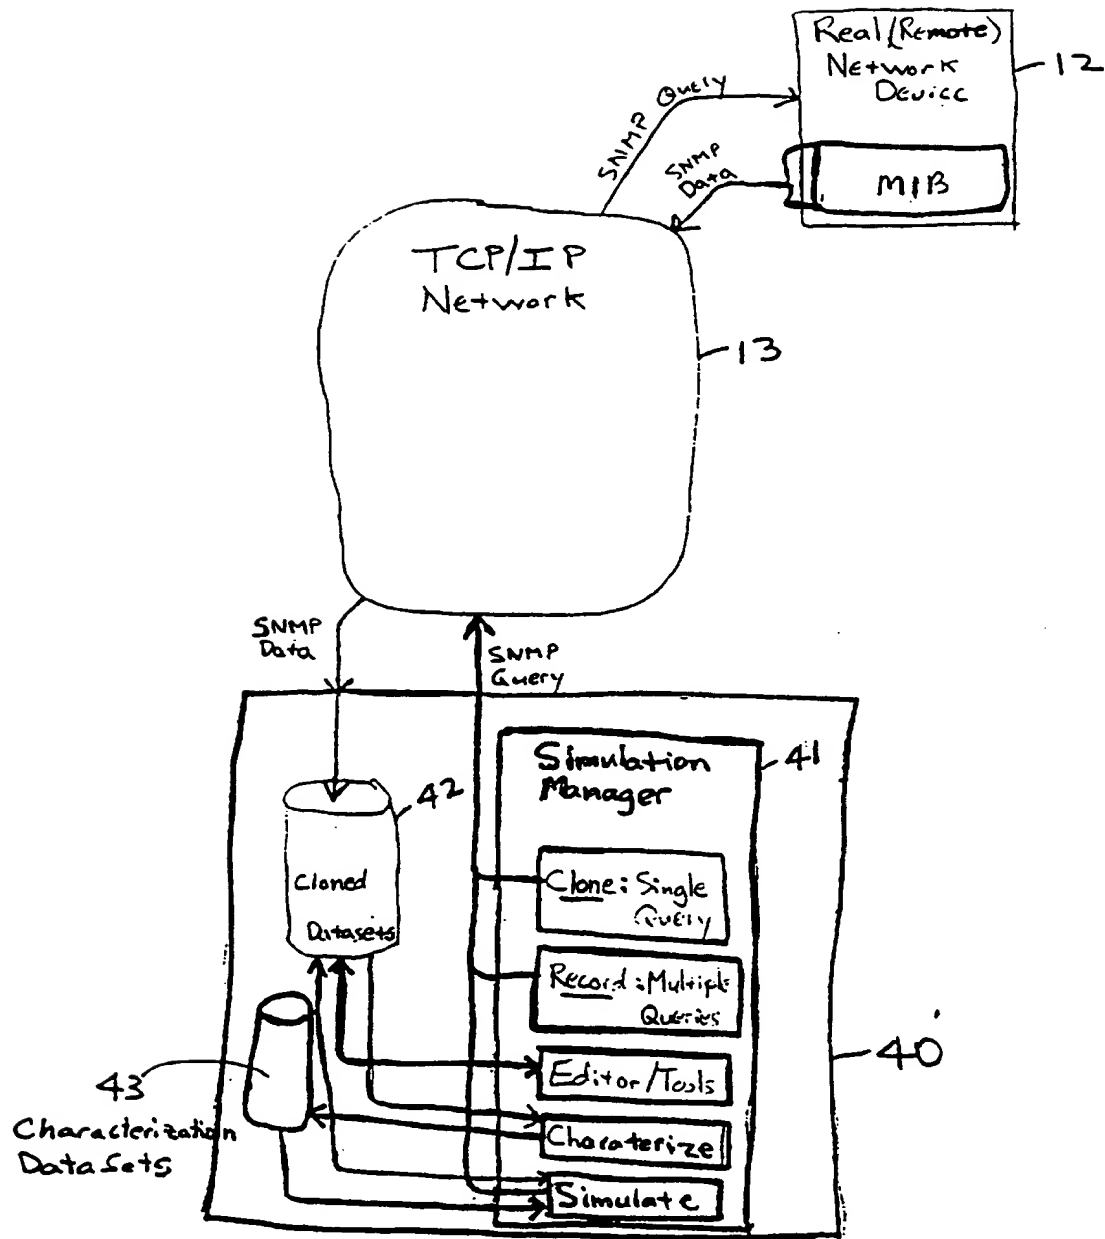 Real (Remote)
Network
Device
12
MIB
SNMP Query
SNMP
Data
TCP/IP
Network
13
SNMP
Data
SNMP
Query
Simulation
Manager
41
42
Cloned
Datasets
Clone: Single
Query
Record: Multiple
Queries
40
Editor/Tools
43
Characterization
Data Sets
Charaterize
Simulate